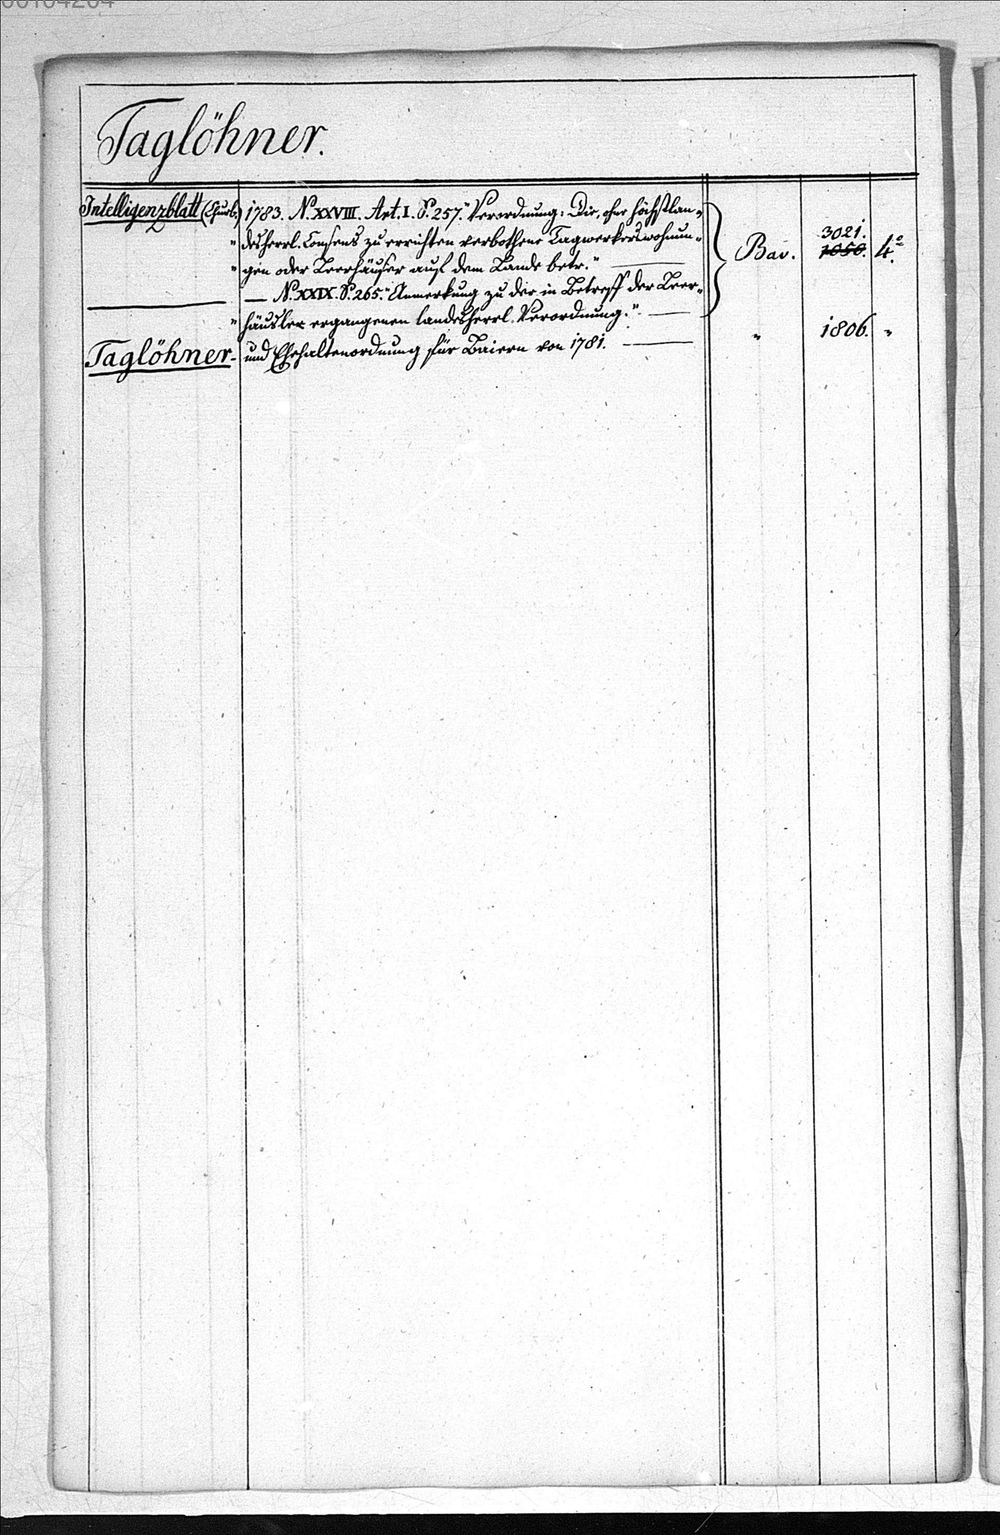 Taglöhner.
Intelligenzblatt (Churb.) 1783. N. XXVIII. Art. I. S. 257. "Verordnung: Die, ohne höchstlan-
" desherrl. Consens zu errichten verbothene Tagwerkerswohnun-
" gen oder Leerhäuser auf dem Lande betr." Bav. 3021. 1050. 4.º
— N. XXIX. S. 265. "Anmerkung zu der in Betreff der Leer-
" häusler ergangenen landesherrl. Verordnung."
Taglöhner- und Ehehaltenordnung für Baiern von 1781. " 1806. "